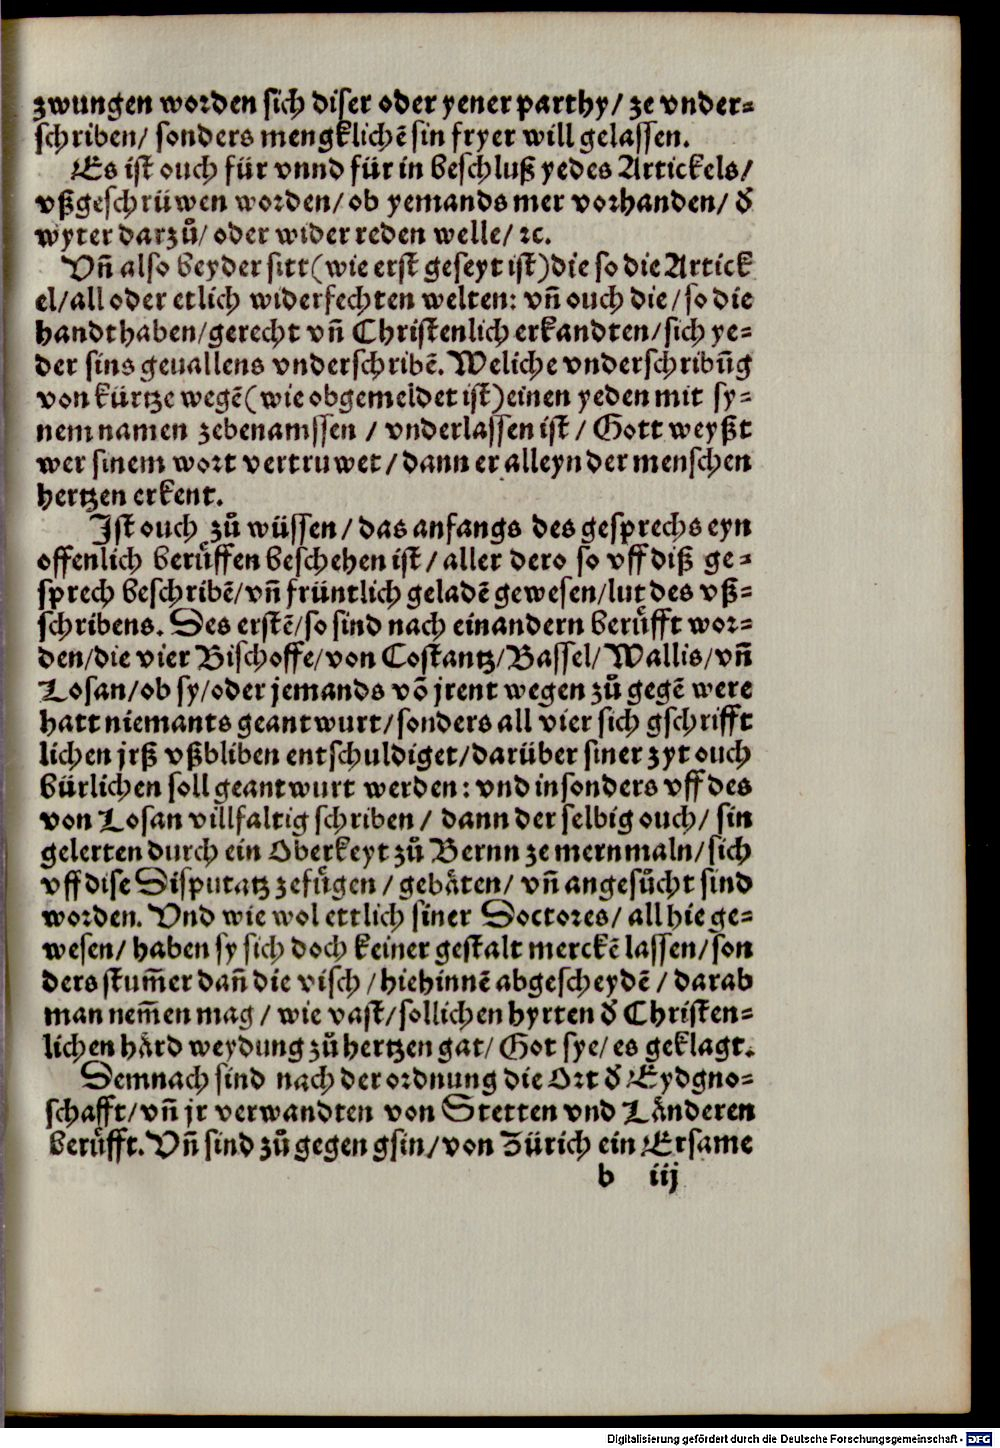 zwungen worden sich diser oder yener parthy/ ze vnder⸗
schriben/ sonders mengklichē sin fryer will gelassen.
Es ist ouch für vnnd für in beschluß yedes Artickels/
vßgeschrüwen worden/ ob yemands mer vorhanden/ d̕
wyter darzů/ oder wider reden welle/ ꝛc.
Vn̄ also beyder sitt(wie erst geseyt ist)die so die Artick
el/all oder etlich widerfechten welten: vn̄ ouch die/ so die
handthaben/gerecht vn̄ Christenlich erkandten/sich ye⸗
der sins geuallens vnderschribē. Weliche vnderschribūg
von kürtze wegē(wie obgemeldet ist)einen yeden mit sy⸗
nem namen zebenamssen / vnderlassen ist/ Gott weyßt
wer sinem wort vertruwet/ dann er alleyn der menschen
hertzen erkent.
Ist ouch zů wüssen/ das anfangs des gesprechs eyn
offenlich berůffen beschehen ist/ aller dero so vff diß ge⸗
sprech beschribē/vn̄ früntlich geladē gewesen/lut des vß⸗
schribens. Des erstē/so sind nach einandern berůfft wor⸗
den/die vier Bischoffe/von Costantz/Bassel/Wallis/vn̄
Losan/ob sy/oder jemands vō jrent wegen zů gegē were
hatt niemants geantwurt/sonders all vier sich gschrifft
lichen jrß vßbliben entschuldiget/darüber siner zyt ouch
bürlichen soll geantwurt werden: vnd insonders vff des
von Losan villfaltig schriben/ dann der selbig ouch/ sin
gelerten durch ein Oberkeyt zů Bernn ze mernmaln/sich
vff dise Disputatz zefůgen / gebäten/ vn̄ angesůcht sind
worden. Vnd wie wol ettlich siner Doctores/ all hie ge⸗
wesen/ haben sy sich doch keiner gestalt merckē lassen/son
ders stum̄er dan̄ die visch /hiehinnē abgescheydē/ darab
man nem̄en mag/ wie vast/sollichen hyrten d̕ Christen⸗
lichen härd weydung zů hertzen gat/ Got sye/ es geklagt.
Demnach sind nach der ordnung die Ort d̕ Eydgno⸗
schafft/vn̄ jr verwandten von Stetten vnd Länderen
berůfft. Vn̄ sind zů gegen gsin/von Zürich ein Ersame
b iij
Digitalisierung gefördert durch die Deutsche Forschungsgemeinschaft - DFG